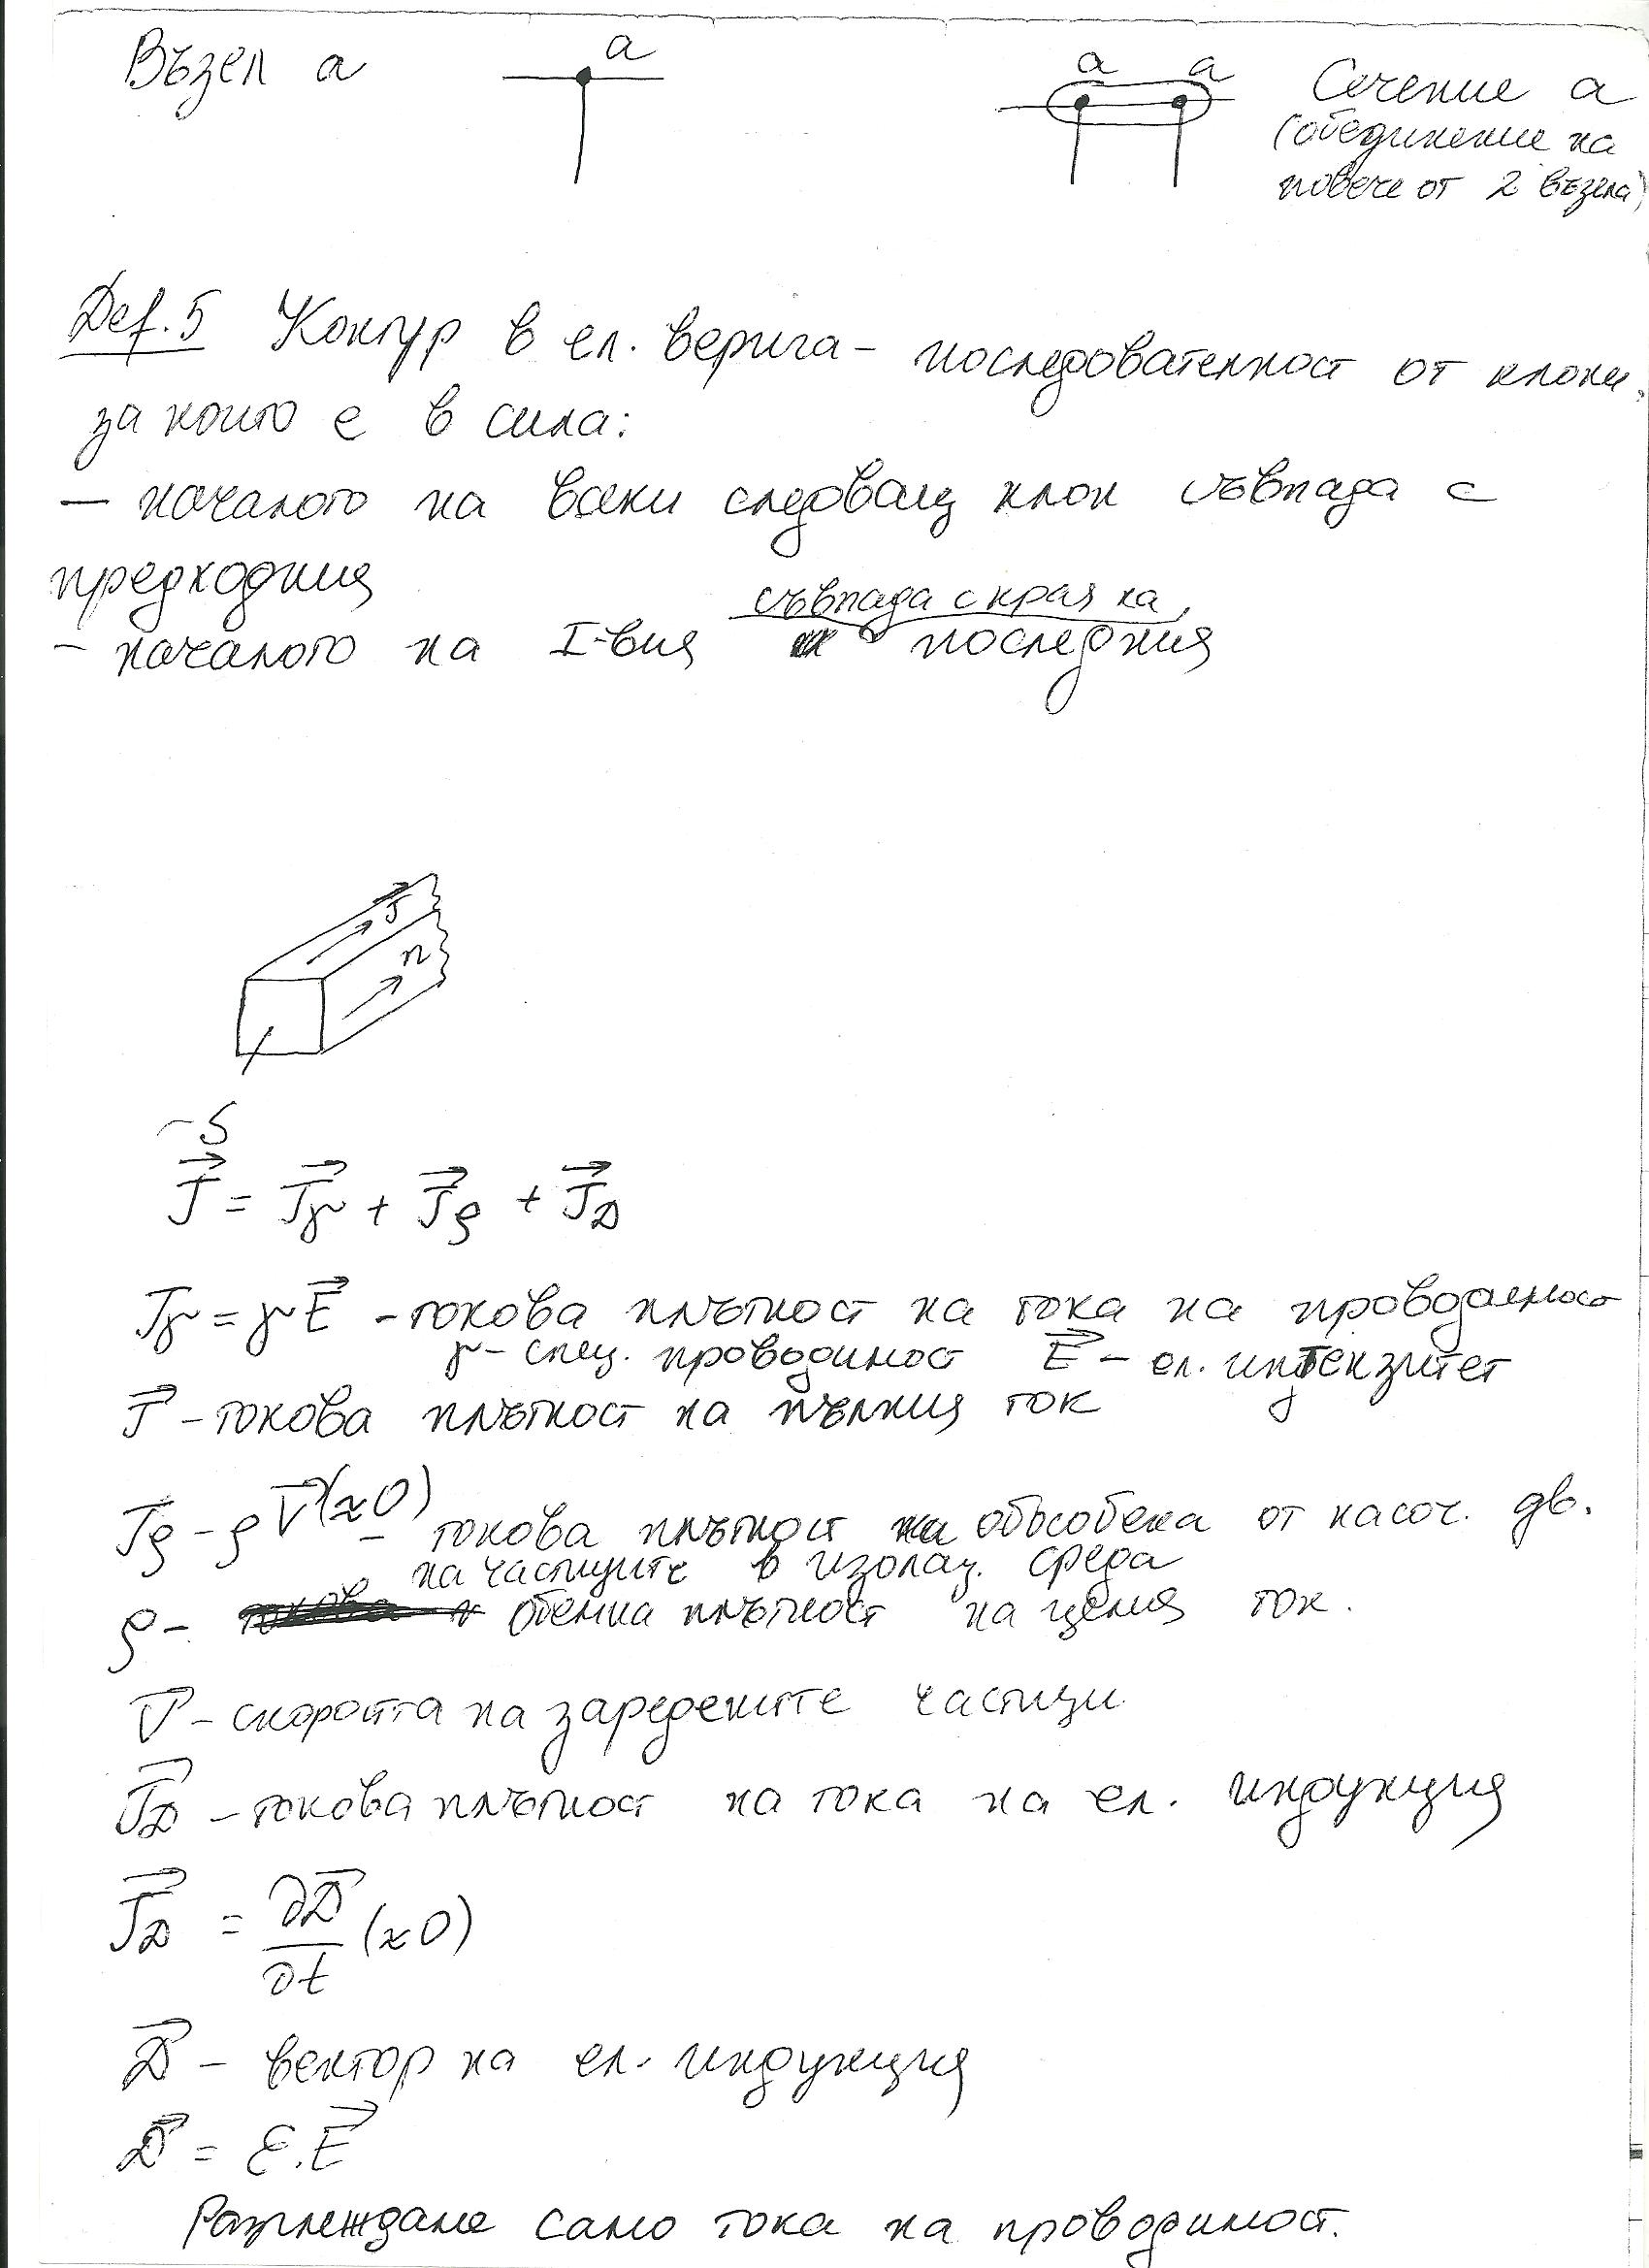 Възел а
а
а а
Сечение а
(обединение на
повече от 2 възела)
Def. 5 Контур в ел. верига – последователност от клони,
за които е в сила:
– началото на всеки следващ клон съвпада с
предходния
съвпада с края на
– началото на I-вия последния
J
n
S
J⃗ = J⃗γ + J⃗ρ + J⃗D
Jγ = γE⃗ – токова плътност на тока на проводимост
γ – спец. проводимост E⃗ – ел. интензитет
J⃗ – токова плътност на пълния ток
Jρ – ρV⃗(≈0) – токова плътност на обособена от насоч. дв.
на частиците в изолац. среда
ρ – обемна плътност на целия ток.
V⃗ – скоростта на заредените частици
J⃗D – токова плътност на тока на ел. индукция
J⃗D = ∂D⃗/∂t (≈0)
D⃗ – вектор на ел. индукция
D⃗ = ε.E⃗
Разглеждаме само тока на проводимост.